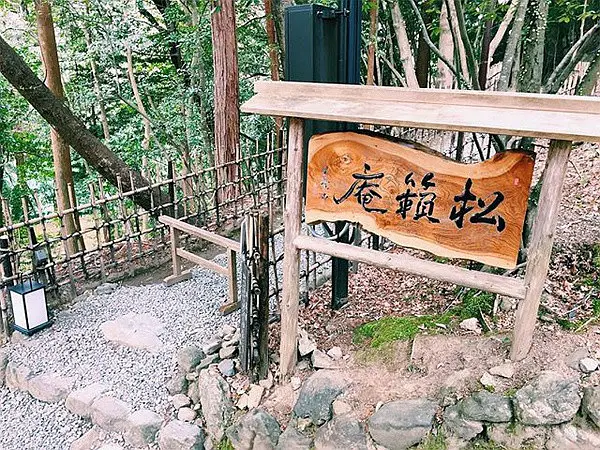 松籟庵